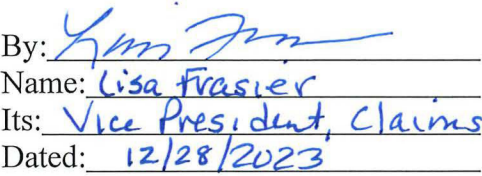 By:
Name: Lisa Frasier
Its: Vice President, Claims
Dated: 12/28/2023